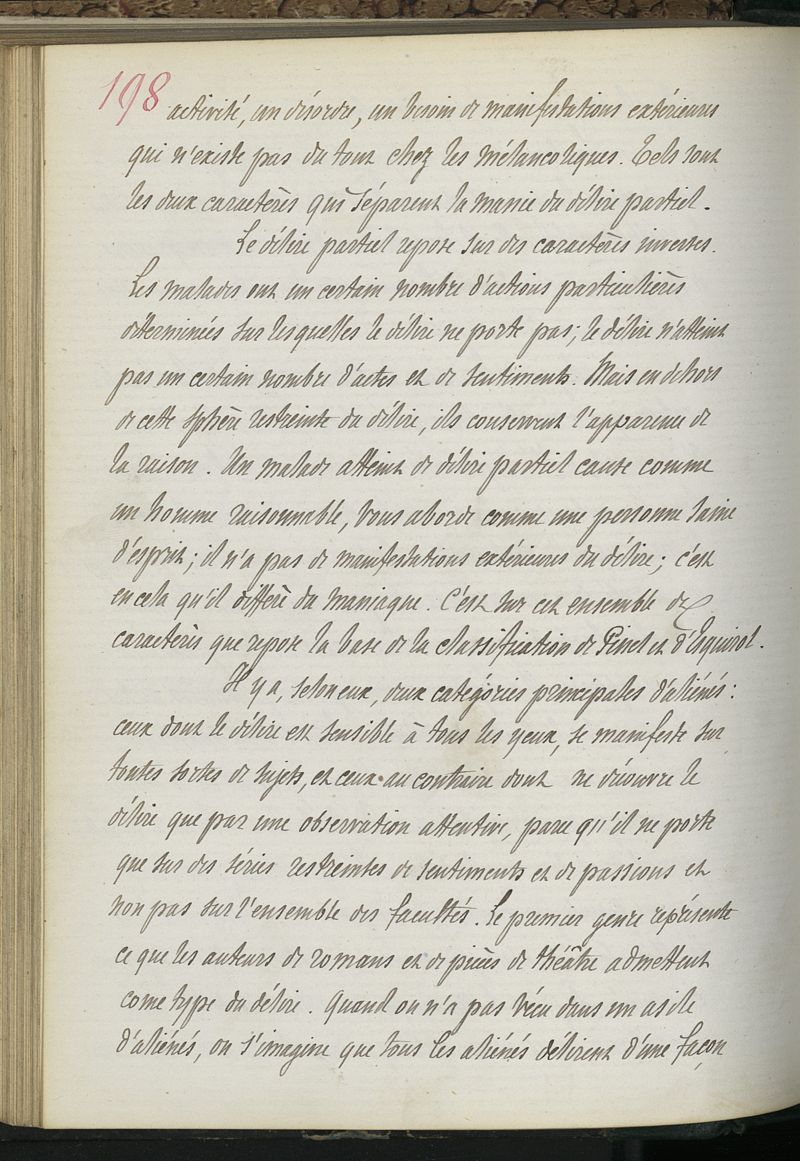 198
activité, un désordre, un besoin de manifestations extérieures
qui n'existe pas du tout chez les mélancoliques. Tels sont
les deux caractères qui séparent la manie du délire partiel.
Le délire partiel repose sur des caractères inverses.
Les malades ont un certain nombre d'actions particulières
déterminées sur lesquelles le délire ne porte pas; le délire n'atteint
pas un certain nombre d'actes et de sentiments. Mais en dehors
de cette sphère restreinte du délire, ils conservent l'apparence de
la raison. Un malade atteint de délire partiel cause comme
un homme raisonnable, vous aborde comme une personne saine
d'esprit; il n'a pas de manifestations extérieures du délire; c'est
en cela qu'il diffère du maniaque. C'est sur cet ensemble de
caractères que repose la base de la classification de Pinel et d'Esquirol.
Il y a, selon eux, deux catégories principales d'aliénés:
ceux dont le délire est sensible à tous les yeux, se manifeste sur
toutes sortes de sujets, et ceux au contraire dont ne découvre le
délire que par une observation attentive, parce qu'il ne porte
que sur des séries restreintes de sentiments et de passions et
non pas sur l'ensemble des facultés. Le premier genre représente
ce que les auteurs de romans et de pièces de théâtre admettent
come type du délire. Quand on n'a pas vécu dans un asile
d'aliénés, on s'imagine que tous les aliénés délirent d'une façon